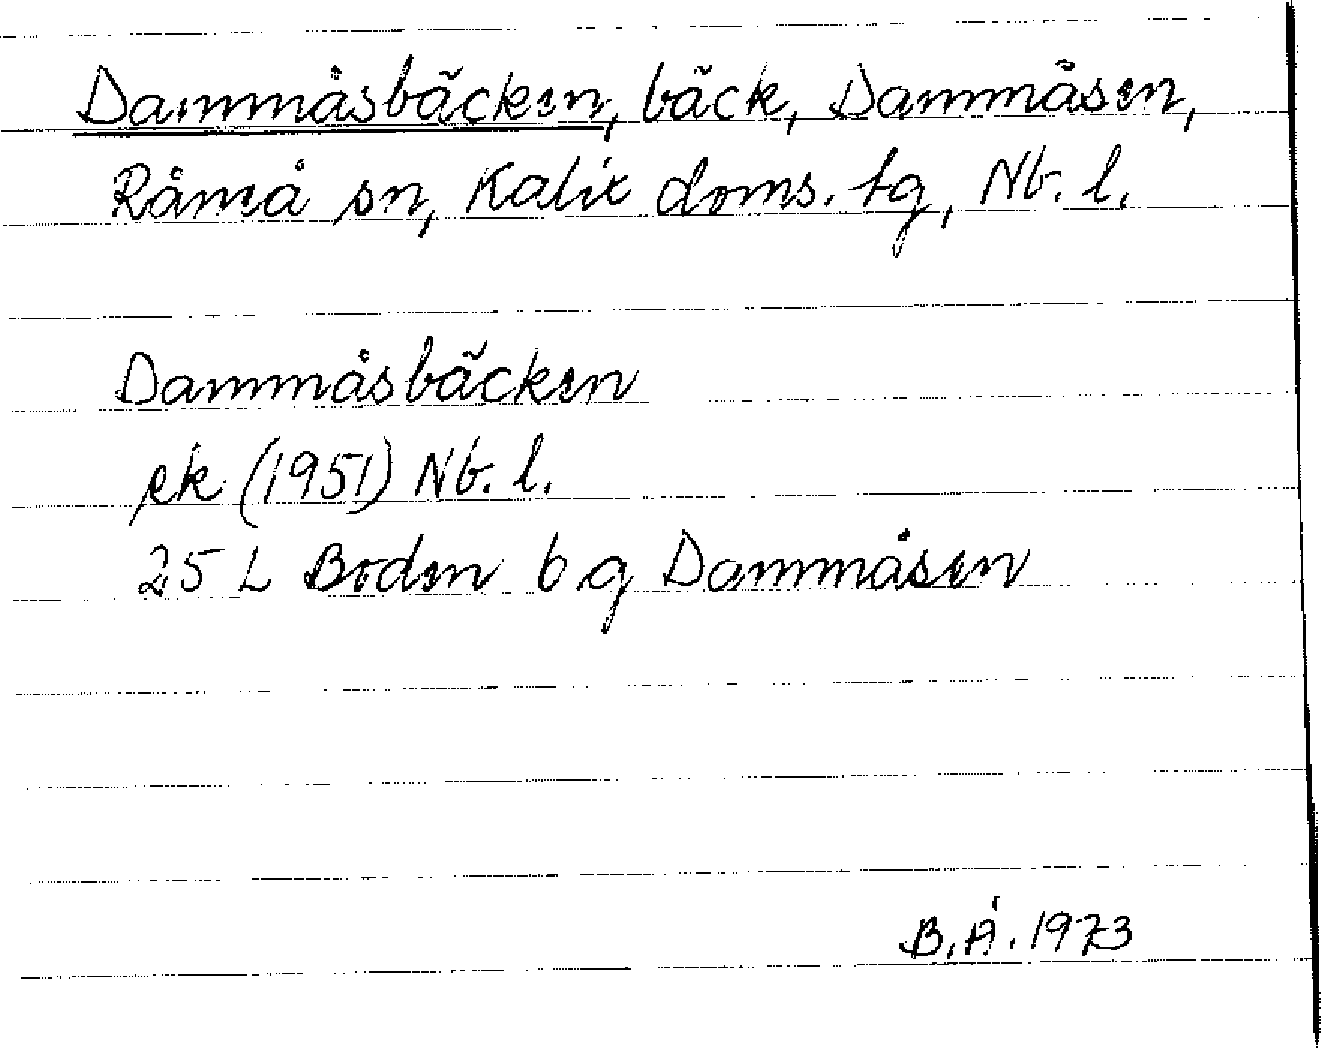 Dammåsbäcken, bäck, Dammåsen,
Råneå sn, Kalix doms. tg, Nb. l.
Dammåsbäcken
rk (1951) Nb. l.
25 L Boden b g Dammåsen
B.Å. 1973